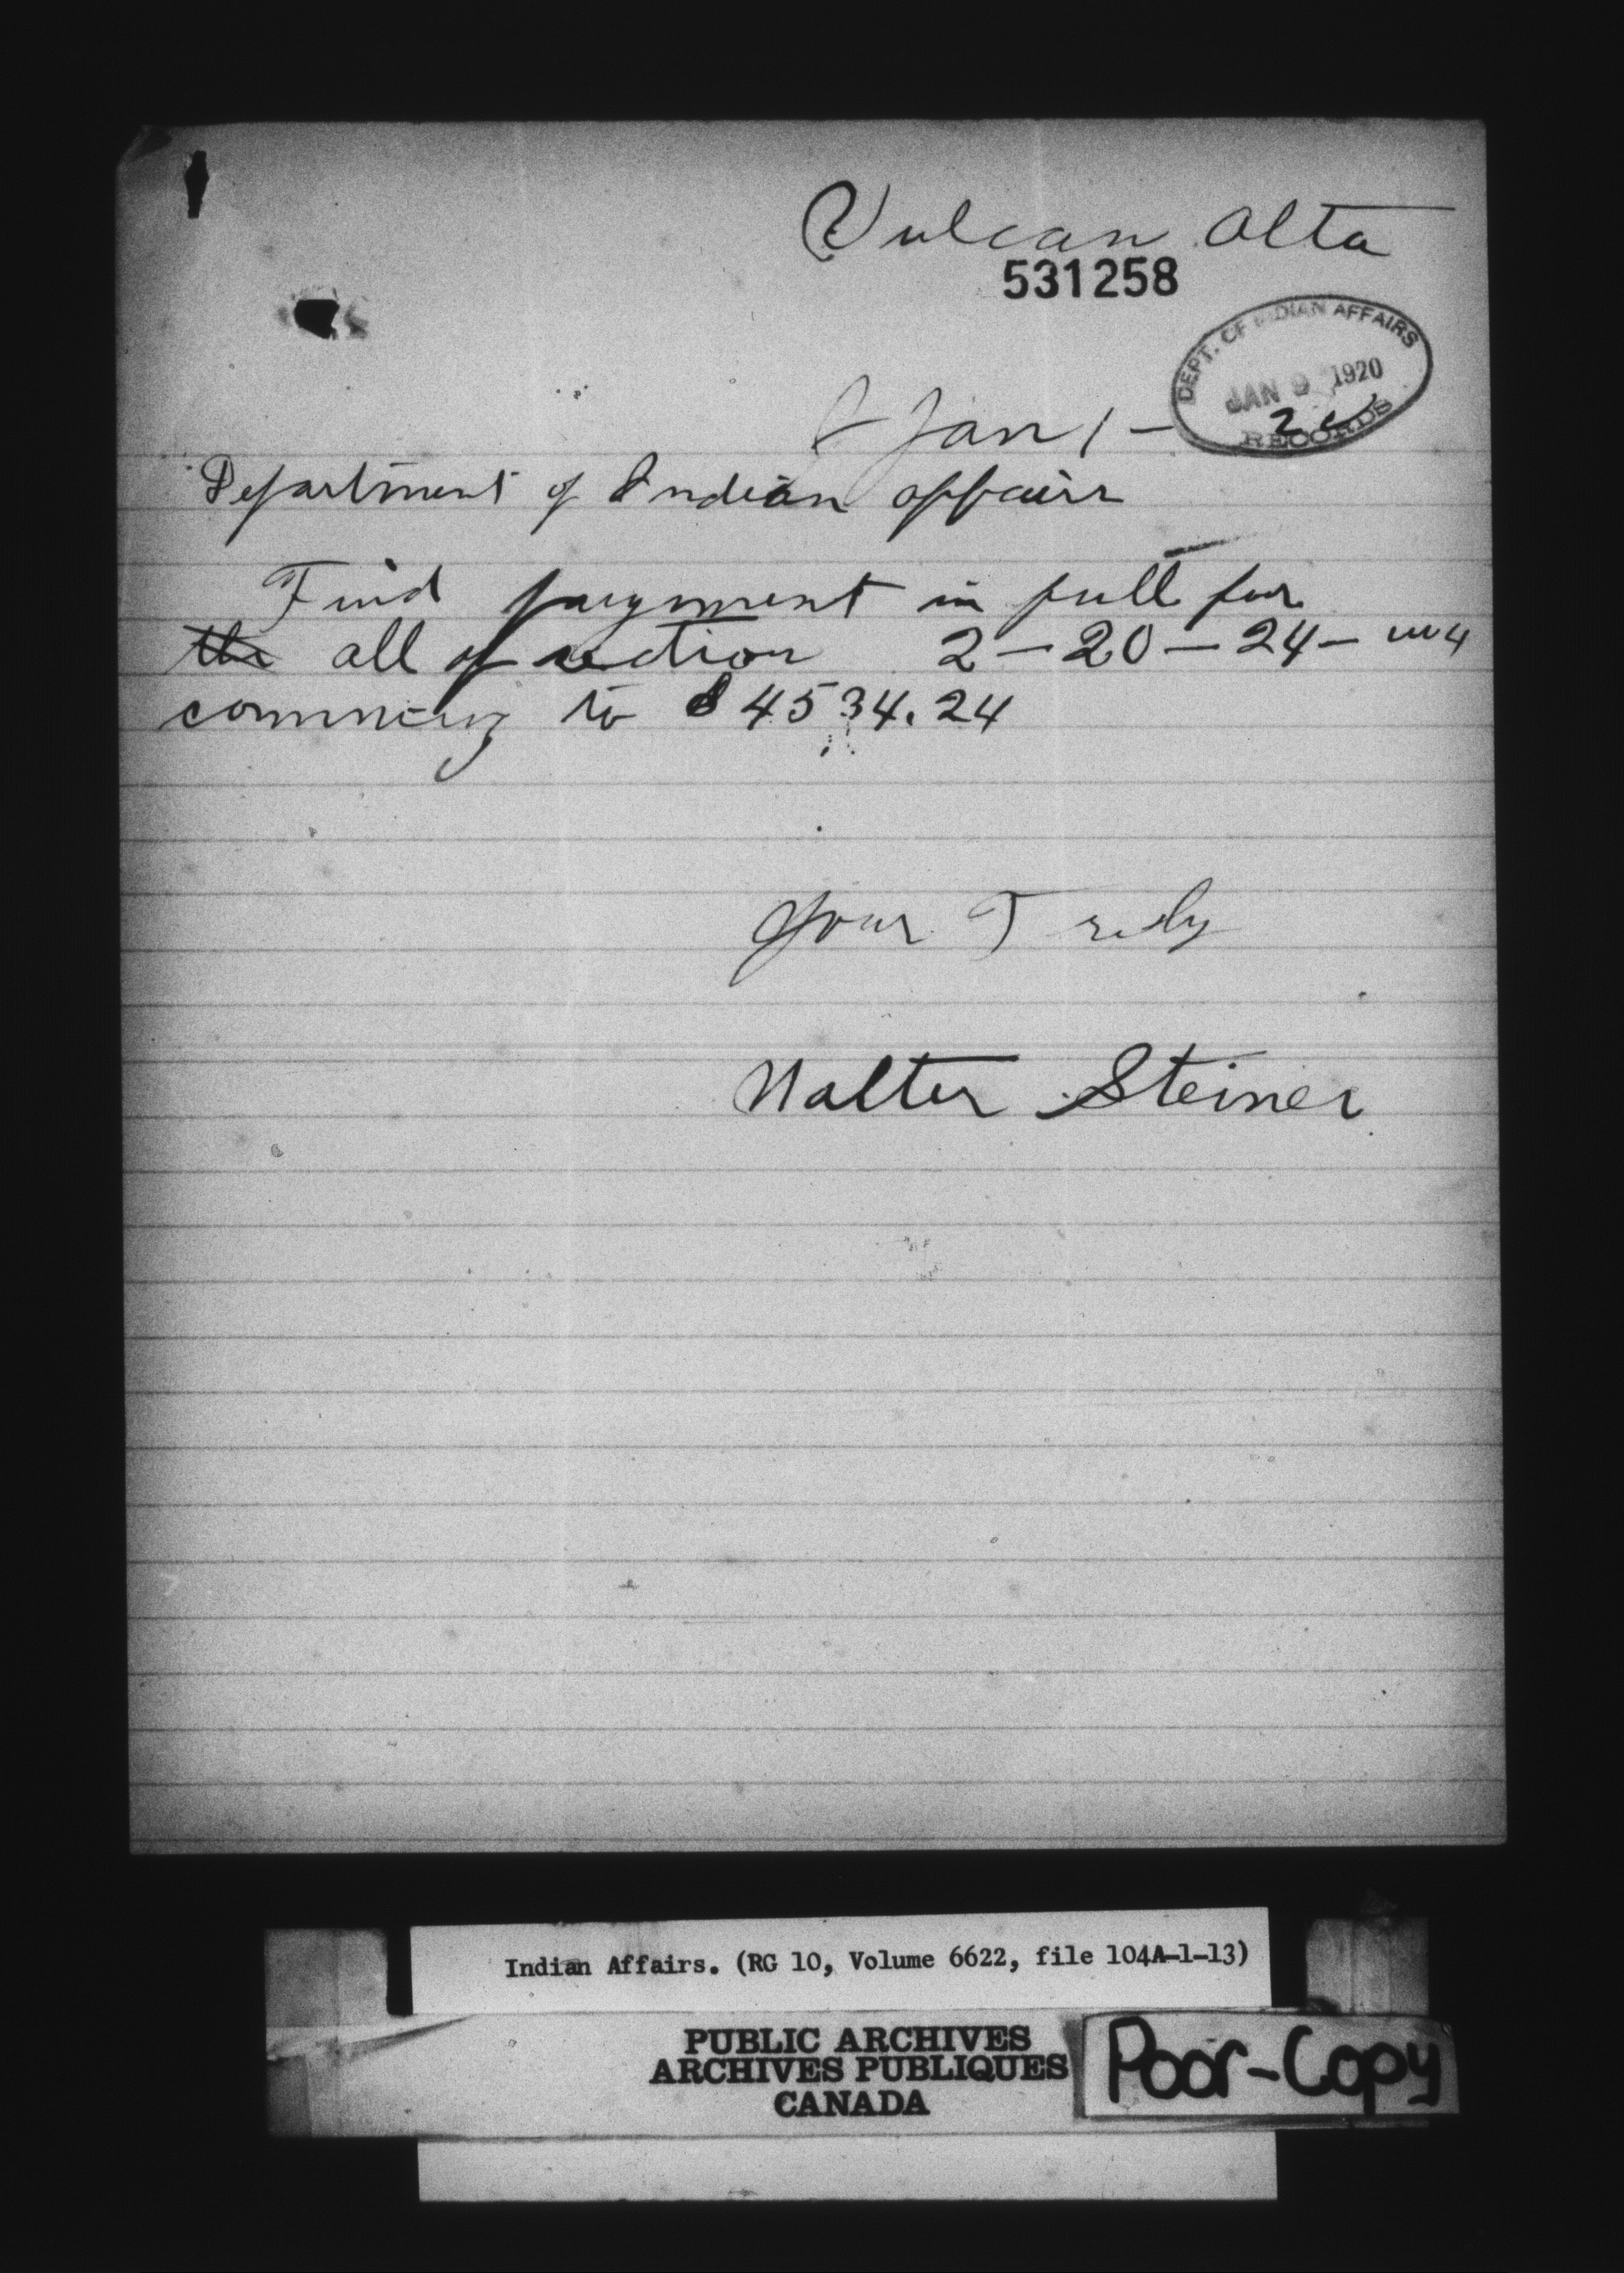 Vulcan Alta
531258
DEPT. OF INDIAN AFFAIRS
JAN 9 1920
RECORDS
Jan 1 - 20
Department of Indian affairs
Find payment in full for
the all of section 2-20-24-w4
comming to $4534.24
Your Truly
Walter Steiner
Indian Affairs. (RG 10, Volume 6622, file 104A-1-13)
PUBLIC ARCHIVES
ARCHIVES PUBLIQUES
CANADA
Poor-Copy